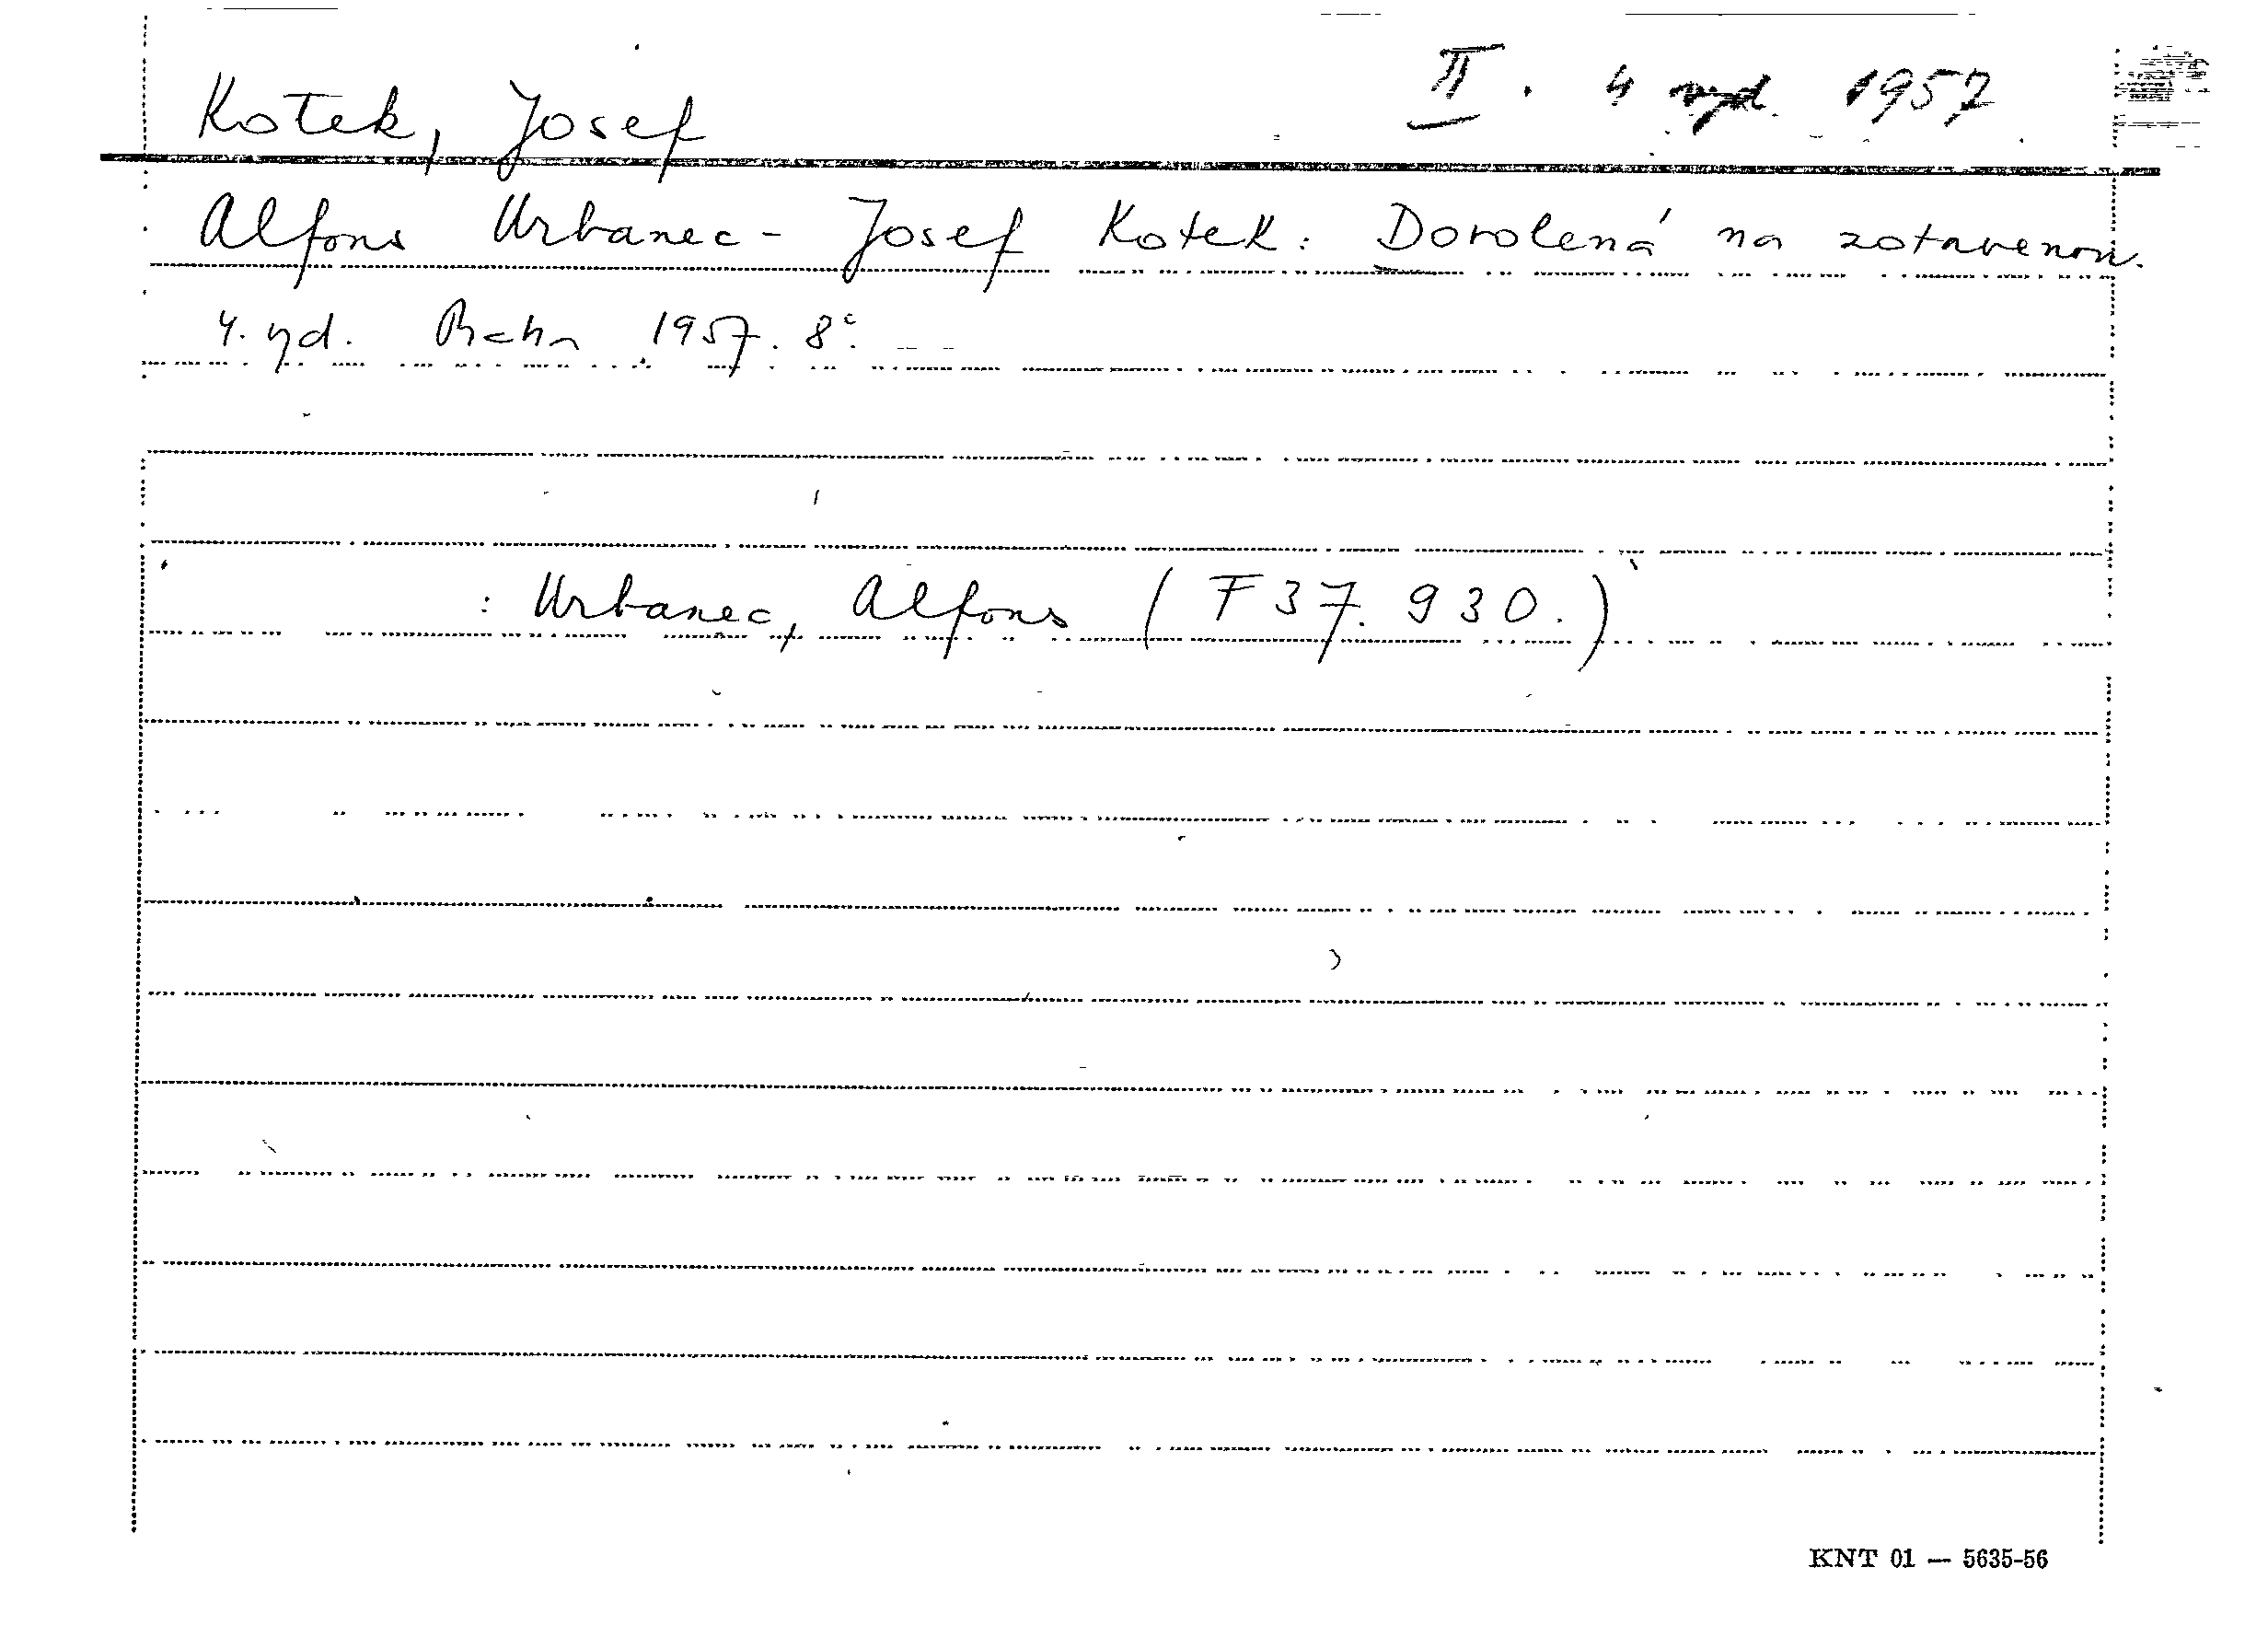 Kotek, Josef II. 4 vyd. 1957
Alfons Urbanec - Josef Kotek: Dovolená na zotavenou.
4. vyd. Praha 1957. 8°.
: Urbanec, Alfons (F 37.930.)
KNT 01 — 5635-56